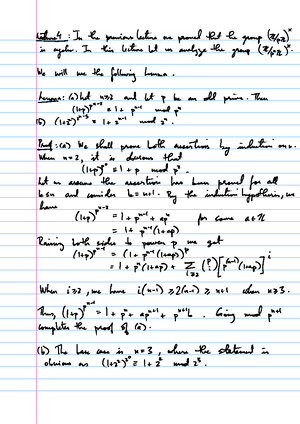 Lecture 4: In the previous lecture we proved that the group (ℤ/pℤ)^×
is cyclic. In this lecture let us analyze the group (ℤ/p^nℤ)^×.
We will use the following lemma.
Lemma: (a) Let n≥2 and let p be an odd prime. Then
(1+p)^{p^{n-2}} ≡ 1 + p^{n-1} mod p^n
(b) (1+2²)^{2^{n-3}} ≡ 1 + 2^{n-1} mod 2^n.
Proof: (a) We shall prove both assertions by induction on n.
When n=2, it is obvious that
(1+p)^{p^0} ≡ 1 + p mod p².
Let us assume the assertion has been proved for all
k≤n and consider k=n+1. By the induction hypothesis, we
have
(1+p)^{p^{n-2}} = 1 + p^{n-1} + ap^n for some a∈ℤ
= 1 + p^{n-1}(1+ap)
Raising both sides to power p we get
(1+p)^{p^{n-1}} = (1 + p^{n-1}(1+ap))^p
= 1 + p^n(1+ap) + Σ_{i≥2} (p i) [p^{(n-1)}(1+ap)]^i
When i≥2, we have i(n-1) ≥ 2(n-1) ≥ n+1 when n≥3.
Thus, (1+p)^{p^{n-1}} = 1 + p^n + ap^{n+1} + p^{n+1}b. Going mod p^{n+1}
completes the proof of (a).
(b) The base case is n=3, where the statement is
obvious as (1+2²)^{2^0} ≡ 1 + 2² mod 2³.